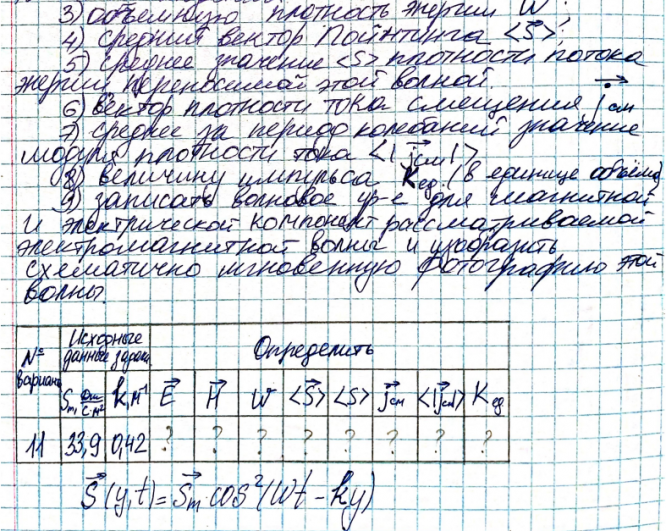 3) объемную плотность энергии W.
4) средний вектор Пойнтинга <S⃗>;
5) среднее значение <S> плотности потока
энергии, переносимой этой волной.
6) вектор плотности тока смещения j⃗см
7) среднее за период колебаний значение
модуля плотности тока <|j⃗см|>
8) величину импульса Kед. (в единице объёма)
9) записать волновое ур-е для магнитной
и электрической компонент рассматриваемой
электромагнитной волны и изобразить
схематично мгновенную фотографию этой
волны.
№ варианта | Исходные данные задачи | Определить
Sm, Дж/с·м² | k, м⁻¹ | E⃗ | H⃗ | W | <S⃗> | <S> | j⃗см | <|j⃗см|> | Kед
11 | 33,9 | 0,42 | ? | ? | ? | ? | ? | ? | ? | ?
S⃗(y,t) = S⃗m cos²(Wt - ky)